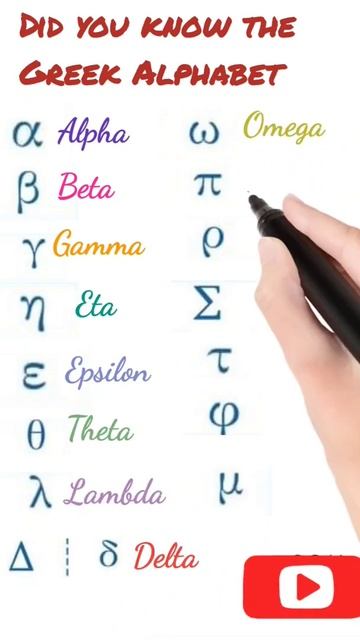 DID YOU KNOW THE
GREEK ALPHABET
α Alpha
β Beta
γ Gamma
η Eta
ε Epsilon
θ Theta
λ Lambda
Δ ¦ δ Delta
ω Omega
π
ρ
Σ
τ
φ
μ